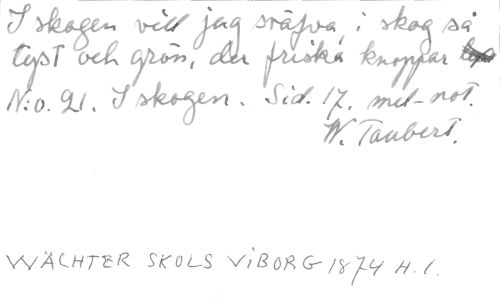 I skogen vill jag sväfva, i skog så
tyst och grön, der friska knoppar
N:o. 21. I skogen. Sid. 17. mel-not.
W. Taubert.
WÄCHTER SKOLS VIBORG 1874 H. 1.